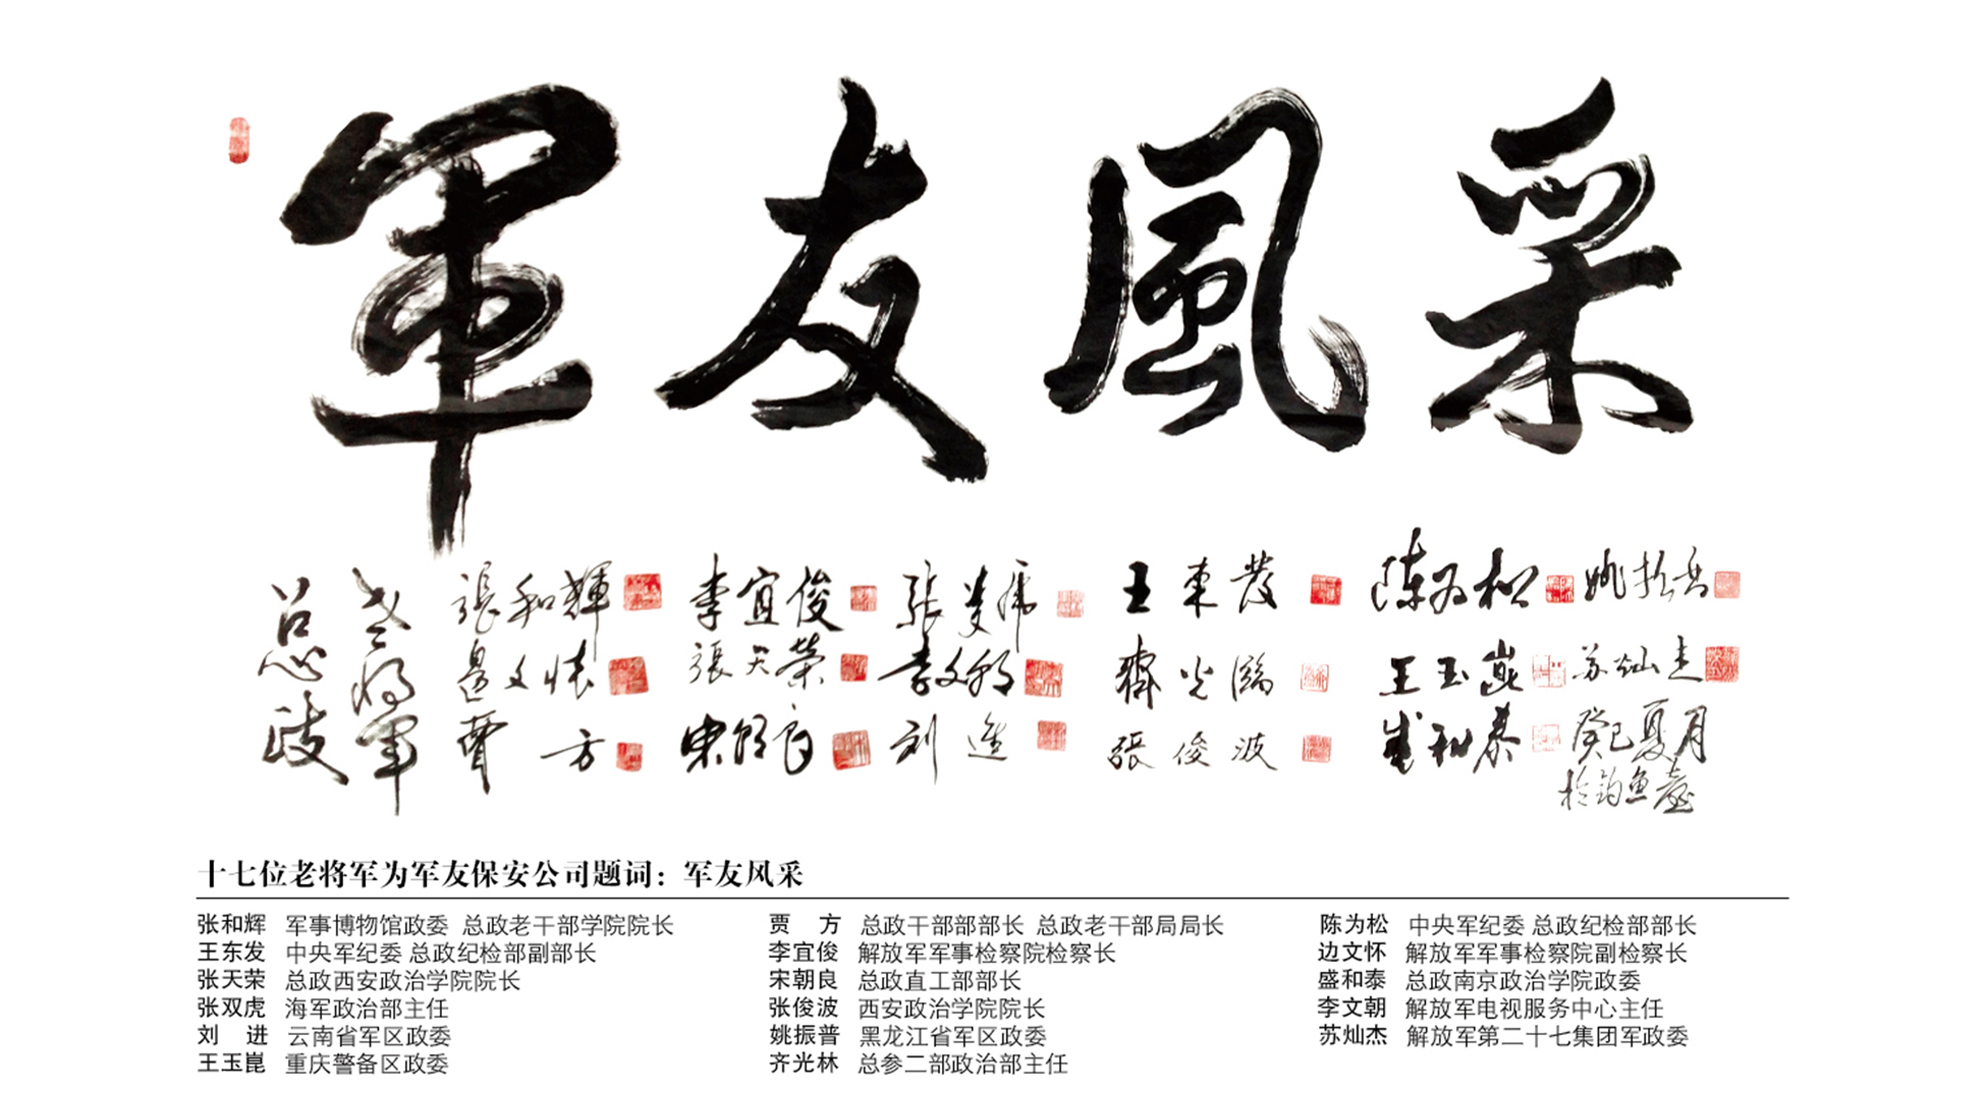 軍友風采
总政
老将軍
張和輝 李宜俊 張双虎 王東發 陈为松 姚振普
邊文怀 張天榮 李文朝 齊光 王玉崑 苏灿杰
賈方 宋朝良 刘進 張俊波 盛和泰 癸巳夏月
於钓鱼臺
十七位老将军为军友保安公司题词：军友风采
张和辉 军事博物馆政委 总政老干部学院院长 贾 方 总政干部部部长 总政老干部局局长 陈为松 中央军纪委 总政纪检部部长
王东发 中央军纪委 总政纪检部副部长 李宜俊 解放军军事检察院检察长 边文怀 解放军军事检察院副检察长
张天荣 总政西安政治学院院长 宋朝良 总政直工部部长 盛和泰 总政南京政治学院政委
张双虎 海军政治部主任 张俊波 西安政治学院院长 李文朝 解放军电视服务中心主任
刘 进 云南省军区政委 姚振普 黑龙江省军区政委 苏灿杰 解放军第二十七集团军政委
王玉崑 重庆警备区政委 齐光林 总参二部政治部主任